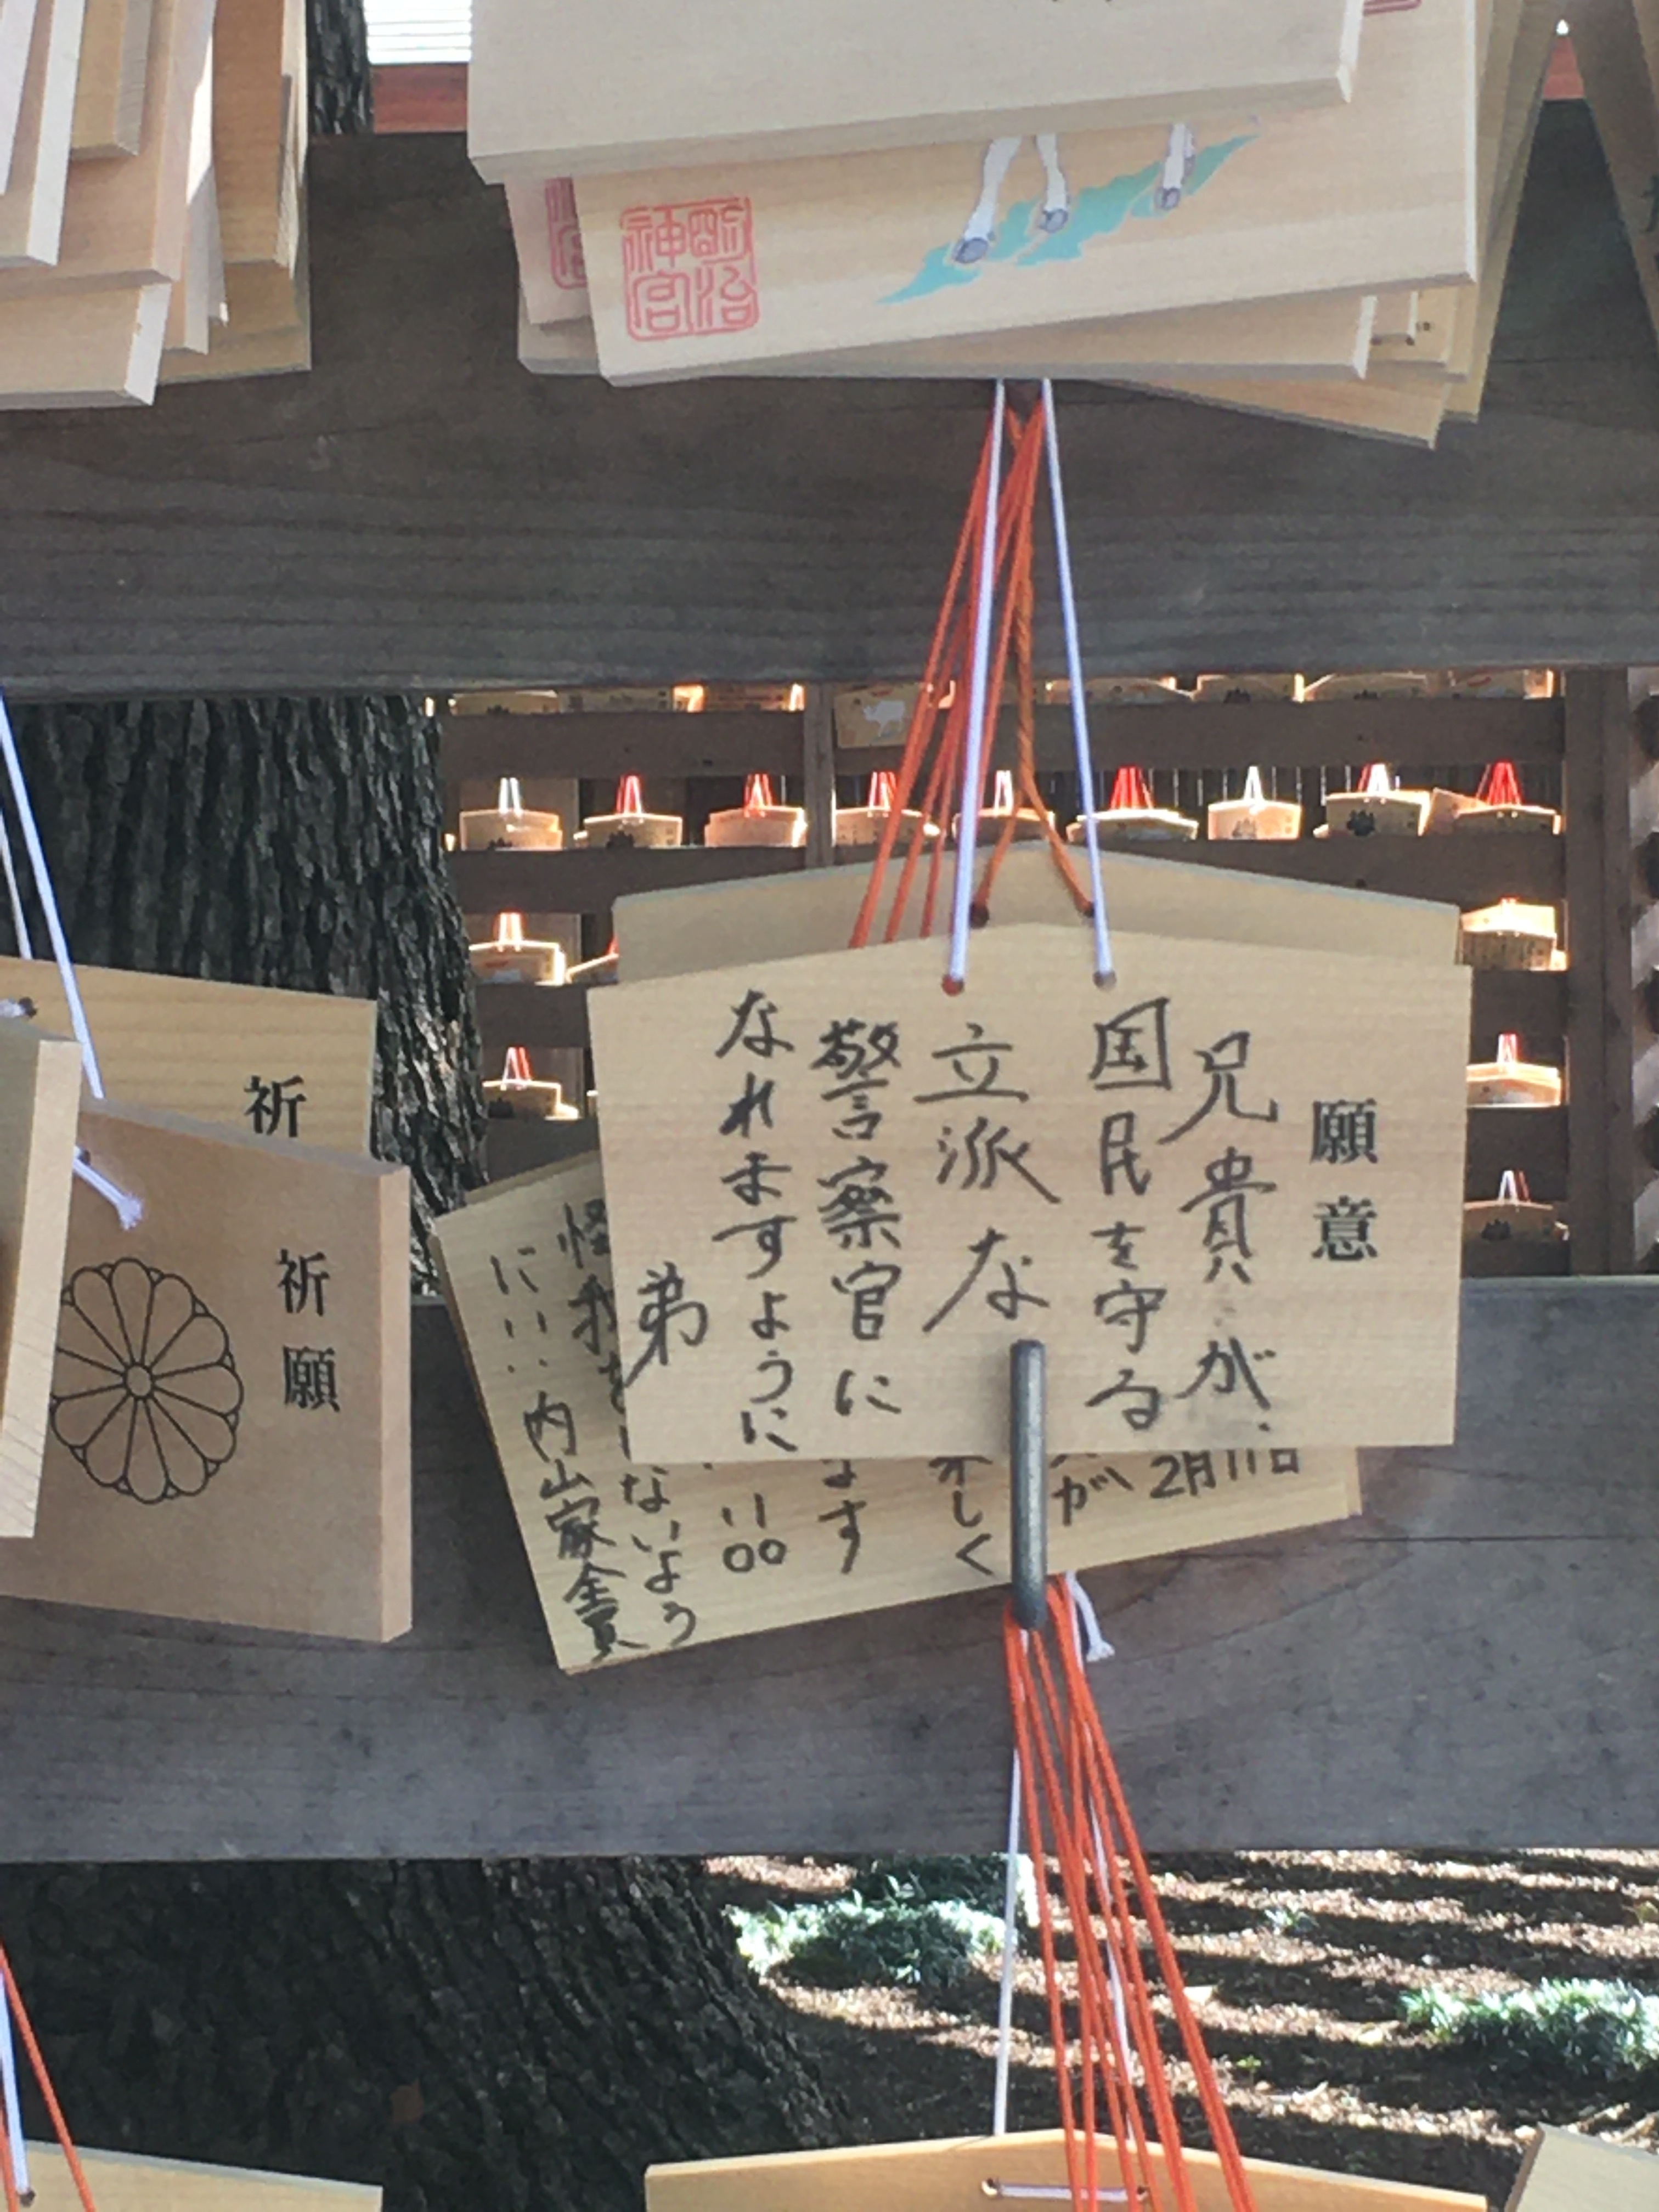 明治
神宮
願意
兄貴が、
国民を守る
立派な
警察官に
なれますように
弟
2月11日
が
しく
ます
い00
怪我をしないよう
に… 内山家全員
祈
祈願